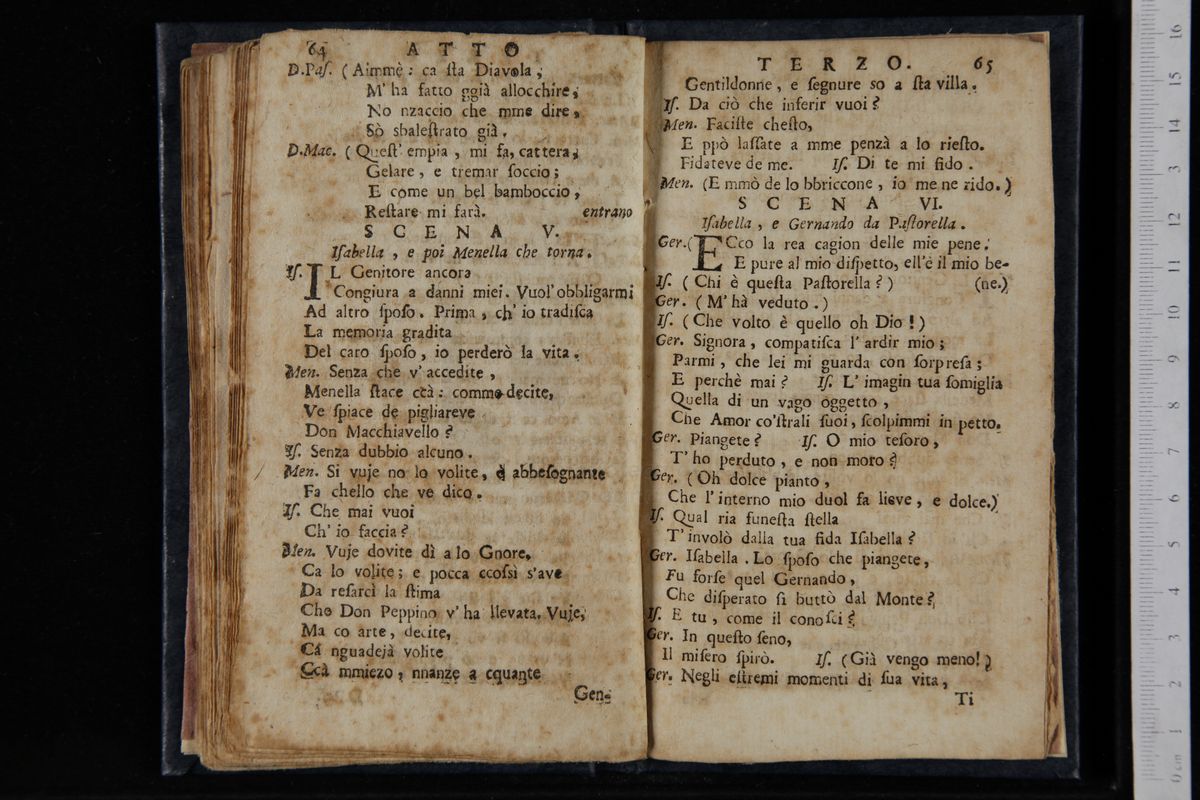 64 ATTO
D.Paſ. (Aimmè: ca ſta Diavola,
M' ha fatto ggià allocchire,
No nzaccio che mme dire,
Sò sbaleſtrato già.
D.Mac. (Queſt' empia, mi fa, cattera,
Gelare, e tremar ſoccio;
E come un bel bamboccio,
Reſtare mi farà. entrano
SCENA V.
Iſabella, e poi Menella che torna.
Iſ. IL Genitore ancora
Congiura a danni miei. Vuol' obbligarmi
Ad altro ſpoſo. Prima, ch' io tradiſca
La memoria gradita
Del caro ſpoſo, io perderò la vita.
Men. Senza che v' accedite,
Menella ſtace ccà: comme decite,
Ve ſpiace de pigliareve
Don Macchiavello?
Iſ. Senza dubbio alcuno.
Men. Si vuje no lo volite, è abbeſognante
Fa chello che ve dico.
Iſ. Che mai vuoi
Ch' io faccia?
Men. Vuje dovite dì a lo Gnore,
Ca lo volite; e pocca ccoſsì s'ave
Da reſarcì la ſtima
Che Don Peppino v' ha llevata. Vuje,
Ma co arte, decite,
Cá nguadejà volite
Ccà mmiezo, nnanze a cquante
Gen-
TERZO. 65
Gentildonne, e ſegnure so a ſta villa.
Iſ. Da ciò che inferir vuoi?
Men. Faciſte cheſto,
E ppò laſſate a mme penzà a lo rieſto.
Fidateve de me. Iſ. Di te mi fido.
Men. (E mmò de lo bbriccone, io me ne rido.)
SCENA VI.
Iſabella, e Gernando da Paſtorella.
Ger. (ECco la rea cagion delle mie pene.
E pure al mio diſpetto, ell'è il mio be-
Iſ. (Chi è queſta Paſtorella?) (ne.)
Ger. (M' hà veduto.)
Iſ. (Che volto è quello oh Dio!)
Ger. Signora, compatiſca l' ardir mio;
Parmi, che lei mi guarda con ſorpreſa;
E perchè mai? Iſ. L' imagin tua ſomiglia
Quella di un vago oggetto,
Che Amor co'ſtrali ſuoi, ſcolpimmi in petto.
Ger. Piangete? Iſ. O mio teſoro,
T' ho perduto, e non moro?
Ger. (Oh dolce pianto,
Che l' interno mio duol fa lieve, e dolce.)
Iſ. Qual ria funeſta ſtella
T' involò dalla tua fida Iſabella?
Ger. Iſabella. Lo ſpoſo che piangete,
Fu forſe quel Gernando,
Che diſperato ſi buttò dal Monte?
Iſ. E tu, come il conoſci?
Ger. In queſto ſeno,
Il miſero ſpirò. Iſ. (Già vengo meno!)
Ger. Negli eſtremi momenti di ſua vita,
Ti
16
15
14
13
12
11
10
9
8
7
6
5
4
3
2
1
0 cm